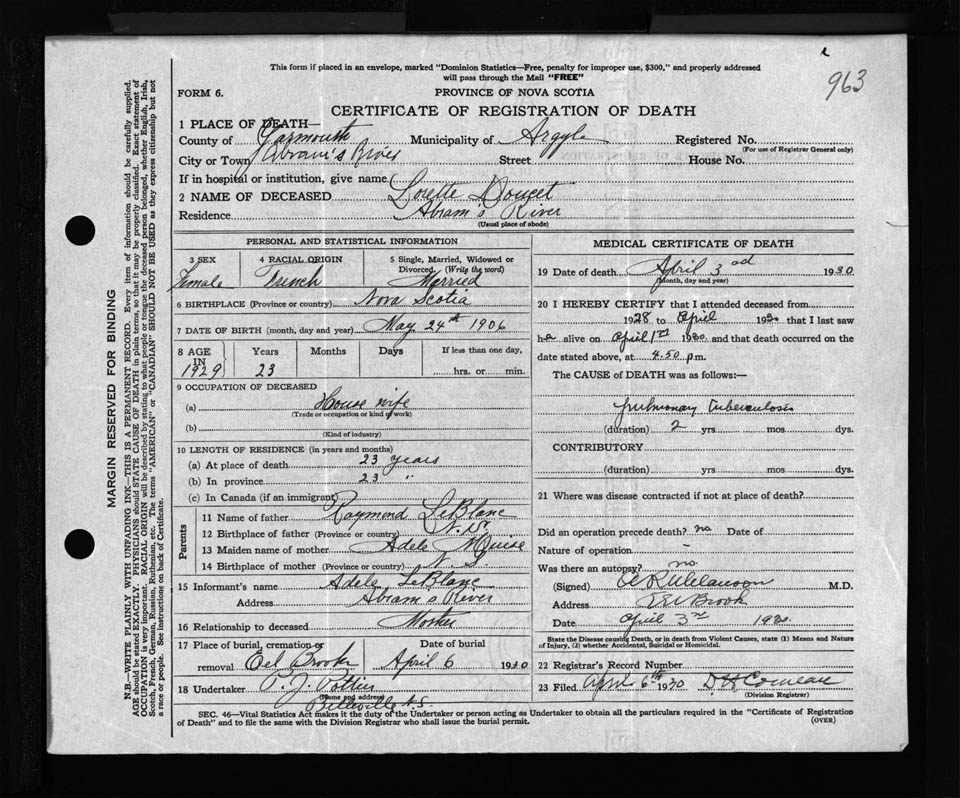 963
This form if placed in an envelope, marked "Dominion Statistics—Free, penalty for improper use, $300," and properly addressed
will pass through the Mail "FREE"
FORM 6.
PROVINCE OF NOVA SCOTIA
CERTIFICATE OF REGISTRATION OF DEATH
1 PLACE OF DEATH—
County of Yarmouth Municipality of Argyle Registered No.
(For use of Registrar General only)
City or Town Abram's River Street House No.
If in hospital or institution, give name
2 NAME OF DECEASED Lorette Doucet
Residence Abram's River
(Usual place of abode)
PERSONAL AND STATISTICAL INFORMATION
3 SEX Female
4 RACIAL ORIGIN French
5 Single, Married, Widowed or
Divorced. (Write the word)
Married
6 BIRTHPLACE (Province or country) Nova Scotia
7 DATE OF BIRTH (month, day and year) May 24th 1906
8 AGE IN 1929 Years 23 Months Days If less than one day,
hrs. or min.
9 OCCUPATION OF DECEASED
(a) House wife
(Trade or occupation or kind of work)
(b)
(Kind of industry)
10 LENGTH OF RESIDENCE (in years and months)
(a) At place of death 23 years
(b) In province 23 "
(c) In Canada (if an immigrant)
Parents
11 Name of father Raymond LeBlanc
12 Birthplace of father (Province or country) N.S.
13 Maiden name of mother Adele
14 Birthplace of mother (Province or country) N. S.
15 Informant's name Adele LeBlanc
Address Abram's River
16 Relationship to deceased Mother
17 Place of burial, cremation or Date of burial
removal Eel Brook April 6 1930
18 Undertaker P. J. Pothier
(Name and address)
Belleville N.S.
MEDICAL CERTIFICATE OF DEATH
19 Date of death April 3rd 1930
(Month, day and year)
20 I HEREBY CERTIFY that I attended deceased from
1928 to April 1930 that I last saw
her alive on April 1st 1930 and that death occurred on the
date stated above, at 4.50 pm.
The CAUSE of DEATH was as follows:—
pulmonary Tuberculosis
(duration) 2 yrs mos dys.
CONTRIBUTORY
(duration) yrs. mos dys.
21 Where was disease contracted if not at place of death?
Did an operation precede death? no Date of
Nature of operation -
Was there an autopsy? no
(Signed) M.D.
Address Eel Brook
Date April 3rd 1930.
State the Disease causing Death, or in death from Violent Causes, state (1) Means and Nature
of Injury, (2) whether Accidental, Suicidal or Homicidal.
22 Registrar's Record Number
23 Filed April 6th 1930 D H Comeau
(Division Registrar)
SEC. 46—Vital Statistics Act makes it the duty of the Undertaker or person acting as Undertaker to obtain all the particulars required in the "Certificate of Registration
of Death" and to file the same with the Division Registrar who shall issue the burial permit. (OVER)
MARGIN RESERVED FOR BINDING
N.B.—WRITE PLAINLY WITH UNFADING INK—THIS IS A PERMANENT RECORD. Every item of information should be carefully supplied.
AGE should be stated EXACTLY. PHYSICIANS should STATE CAUSE OF DEATH in plain terms, so that it may be properly classified. Exact statement of
OCCUPATION is very important. RACIAL ORIGIN will be described by stating to what people or tongue the deceased person belonged, whether English, Irish,
Scotch, French, German, Russian, Ruthenian, etc. The terms "AMERICAN" or "CANADIAN" SHOULD NOT BE USED as they express citizenship but not
a race or people. See instructions on back of Certificate.